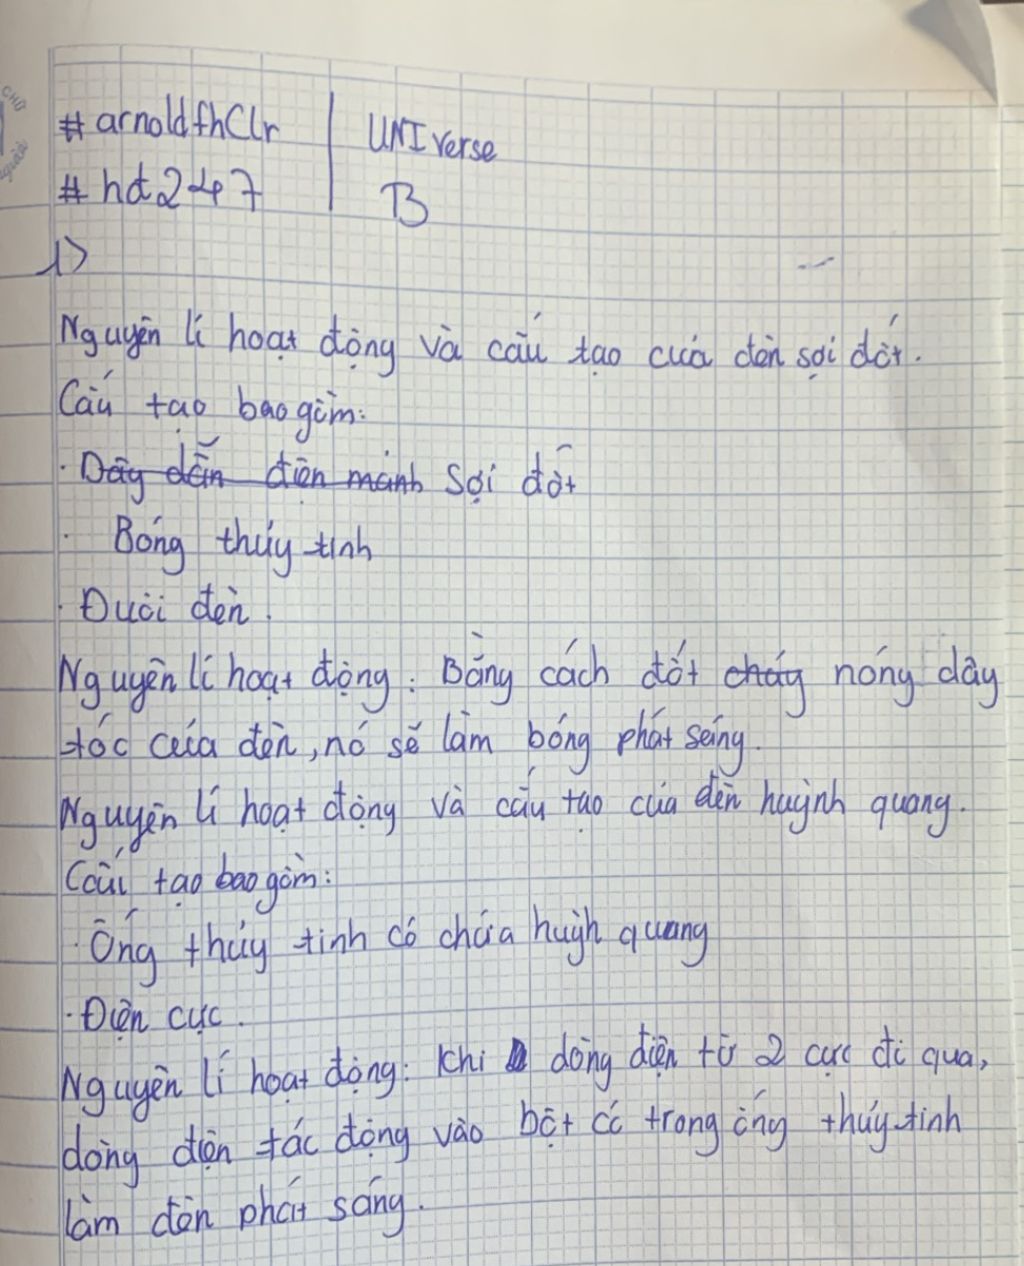 CHỮ
#arnoldfhClr | UNIverse
#hđ247 | B
1>
Nguyên lí hoạt động và cấu tạo của đèn sợi đốt.
Cấu tạo bao gồm:
· Dây dẫn điện mảnh Sợi đốt
· Bóng thủy tinh
· Đuôi đèn.
Nguyên lí hoạt động: Bằng cách đốt cháy nóng dây
tóc của đèn, nó sẽ làm bóng phát sáng.
Nguyên lí hoạt động và cấu tạo của đèn huỳnh quang.
Cấu tạo bao gồm:
· Ống thủy tinh có chứa huỳh quang
· Điện cực.
Nguyên lí hoạt động: Khi dòng điện từ 2 cực đi qua,
dòng điện tác động vào bột có trong ống thủy tinh
làm đèn phát sáng.